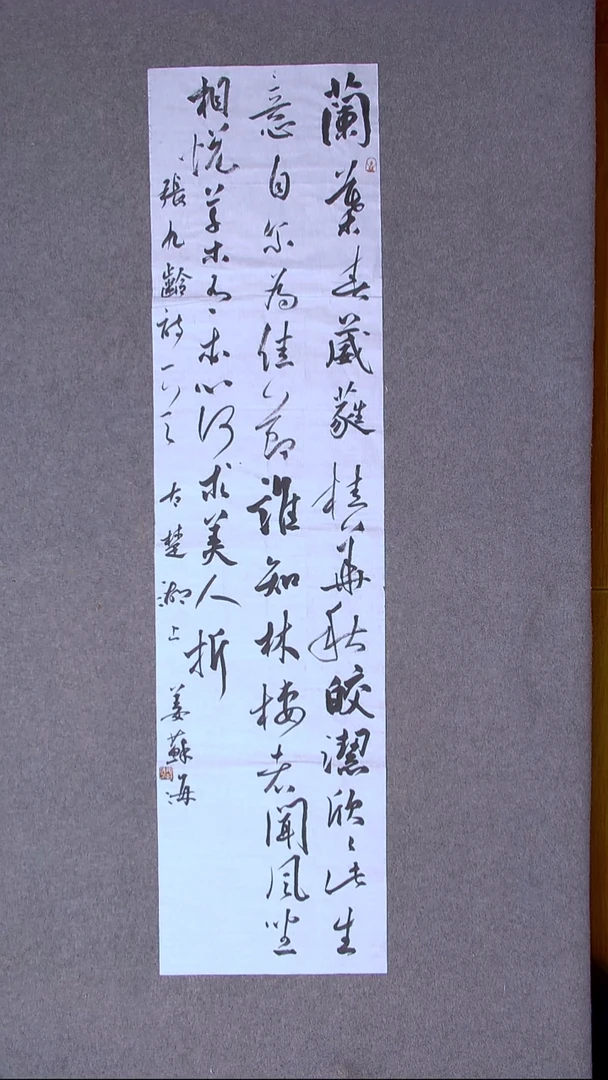 蘭葉春葳蕤桂華秋皎潔欣欣此生
意自尔為佳節誰知林棲者聞風坐
相悦草木有本心何求美人折
張九齡詩一首 古楚湖上 姜蘇海